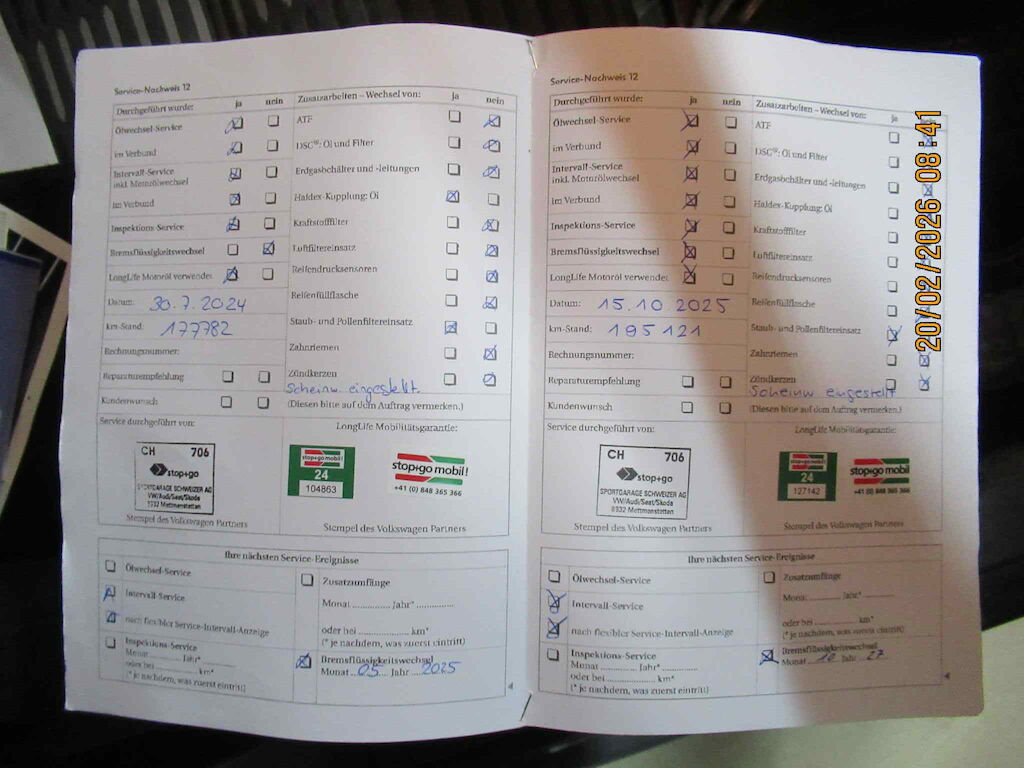 Service-Nachweis 12
Durchgeführt wurde: ja nein
Ölwechsel-Service
im Verbund
Intervall-Service
inkl. Motorölwechsel
im Verbund
Inspektions-Service
Bremsflüssigkeitswechsel
LongLife Motoröl verwendet
Datum: 30.7.2024
km-Stand: 177782
Rechnungsnummer:
Reparaturempfehlung
Kundenwunsch
Zusatzarbeiten – Wechsel von: ja nein
ATF
DSG®: Öl und Filter
Erdgasbehälter und -leitungen
Haldex-Kupplung: Öl
Kraftstofffilter
Luftfiltereinsatz
Reifendrucksensoren
Reifenfüllflasche
Staub- und Pollenfiltereinsatz
Zahnriemen
Zündkerzen
Scheinw eingestellt.
(Diesen bitte auf dem Auftrag vermerken.)
Service durchgeführt von:
CH 706
stop+go
SPORTGARAGE SCHWEIZER AG
VW/Audi/Seat/Skoda
8932 Mettmenstetten
Stempel des Volkswagen Partners
LongLife Mobilitätsgarantie:
stop+go mobil!
24
104863
stop+go mobil!
+41 (0) 848 365 366
Stempel des Volkswagen Partners
Ihre nächsten Service-Ereignisse
Ölwechsel-Service
Intervall-Service
nach flexibler Service-Intervall-Anzeige
Inspektions-Service
Monat ............ Jahr* ............
oder bei .................. km*
(* je nachdem, was zuerst eintritt)
Zusatzumfänge
Monat ............ Jahr* ............
oder bei .................. km*
(* je nachdem, was zuerst eintritt)
Bremsflüssigkeitswechsel
Monat 05 Jahr 2025
Service-Nachweis 12
Durchgeführt wurde: ja nein
Ölwechsel-Service
im Verbund
Intervall-Service
inkl. Motorölwechsel
im Verbund
Inspektions-Service
Bremsflüssigkeitswechsel
LongLife Motoröl verwendet
Datum: 15.10.2025
km-Stand: 195121
Rechnungsnummer:
Reparaturempfehlung
Kundenwunsch
Zusatzarbeiten – Wechsel von: ja
ATF
DSG®: Öl und Filter
Erdgasbehälter und -leitungen
Haldex-Kupplung: Öl
Kraftstofffilter
Luftfiltereinsatz
Reifendrucksensoren
Reifenfüllflasche
Staub- und Pollenfiltereinsatz
Zahnriemen
Zündkerzen
Scheinw eingestellt
(Diesen bitte auf dem Auftrag vermerken.)
Service durchgeführt von:
CH 706
stop+go
SPORTGARAGE SCHWEIZER AG
VW/Audi/Seat/Skoda
8932 Mettmenstetten
Stempel des Volkswagen Partners
LongLife Mobilitätsgarantie:
stop+go mobil!
24
127142
stop+go mobil
+41 (0) 848 365 366
Stempel des Volkswagen Partners
Ihre nächsten Service-Ereignisse
Ölwechsel-Service
Intervall-Service
nach flexibler Service-Intervall-Anzeige
Inspektions-Service
Monat ............ Jahr* ............
oder bei .................. km*
(* je nachdem, was zuerst eintritt)
Zusatzumfänge
Monat ............ Jahr* ............
oder bei .................. km*
(* je nachdem, was zuerst eintritt)
Bremsflüssigkeitswechsel
Monat 10 Jahr 27
20/02/2026 08:41